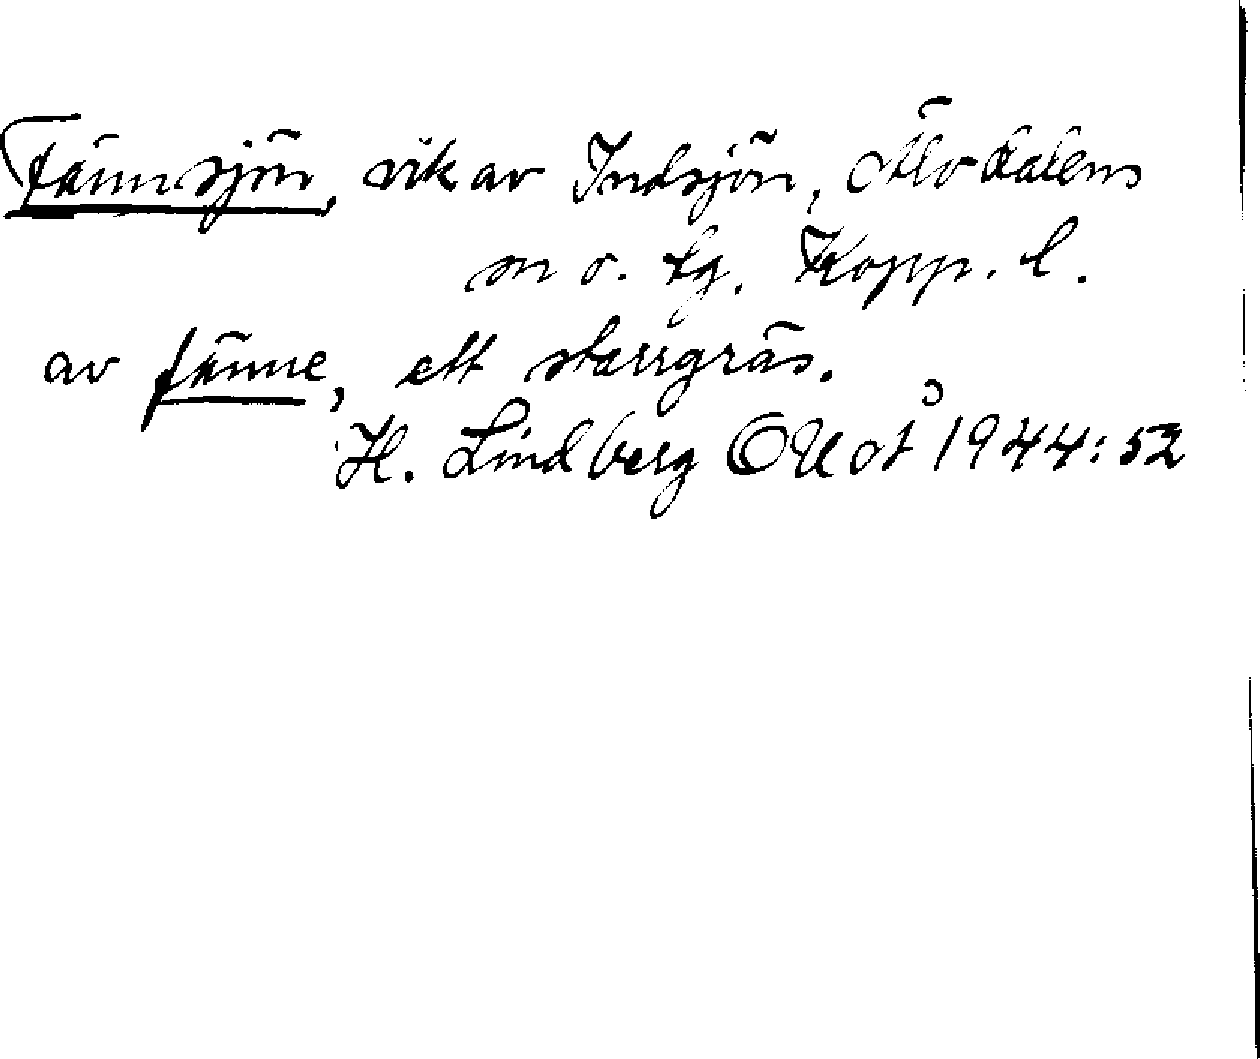 Fännsjön, vik av Indsjön, Älvdalens
sn o. tg. Kopp. l.
av fänne, ett starrgräs.
H. Lindberg OUoÅ 1944:52